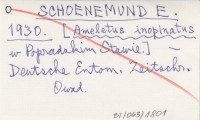 SCHOENEMUND E.
1930. [Ameletus inopinatus
w Popradzkim Stawie.] –
Deutsche Entom. Zeitschr.
Owad.
01/093/1801